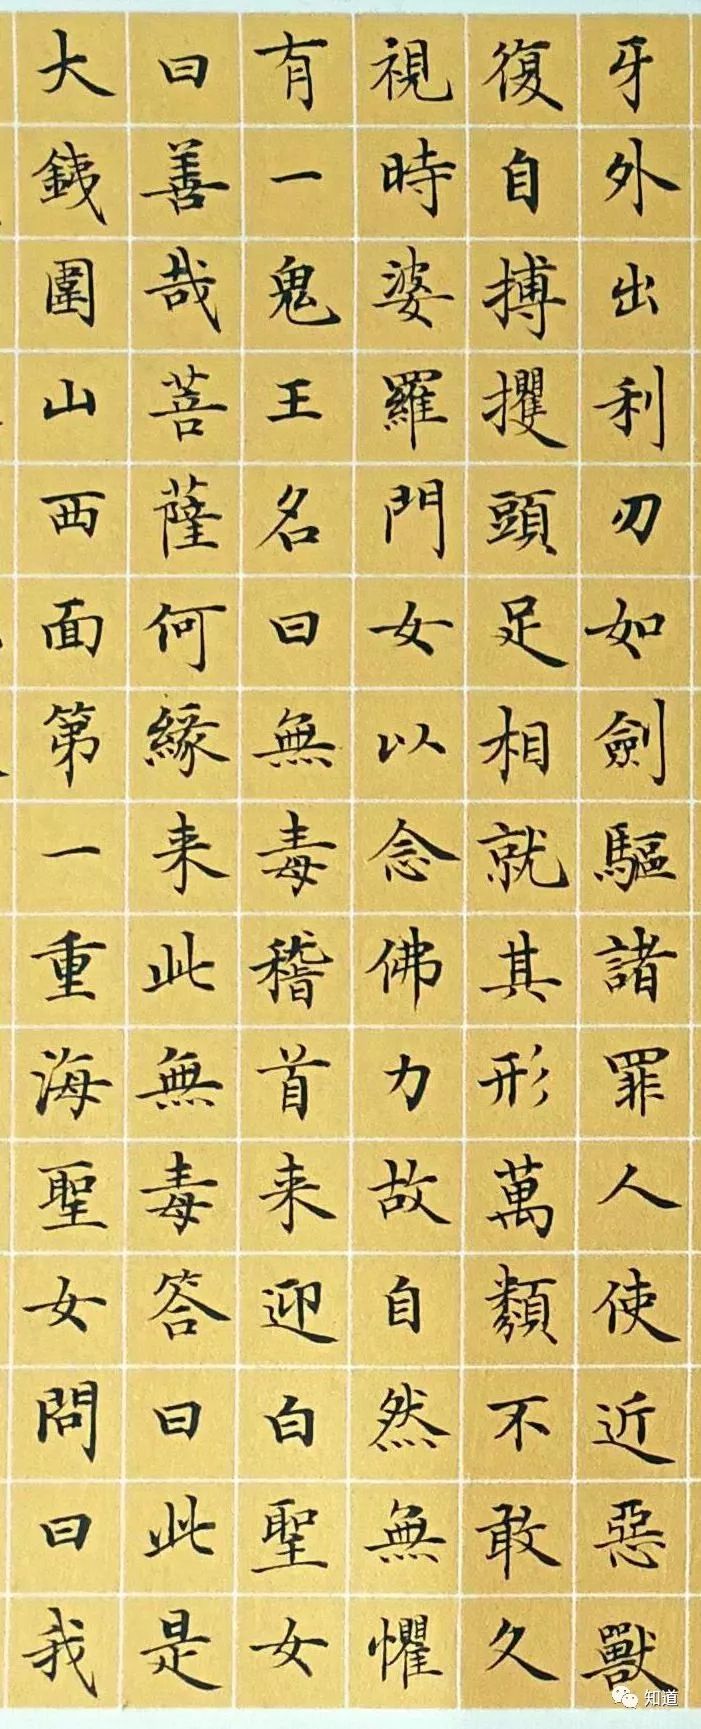 牙外出利刃如劍驅諸罪人使近惡獸
復自搏攫頭足相就其形萬類不敢久
視時婆羅門女以念佛力故自然無懼
有一鬼王名曰無毒稽首来迎白聖女
曰善哉菩薩何緣来此無毒答曰此是
大銕圍山西面第一重海聖女問曰我
知道